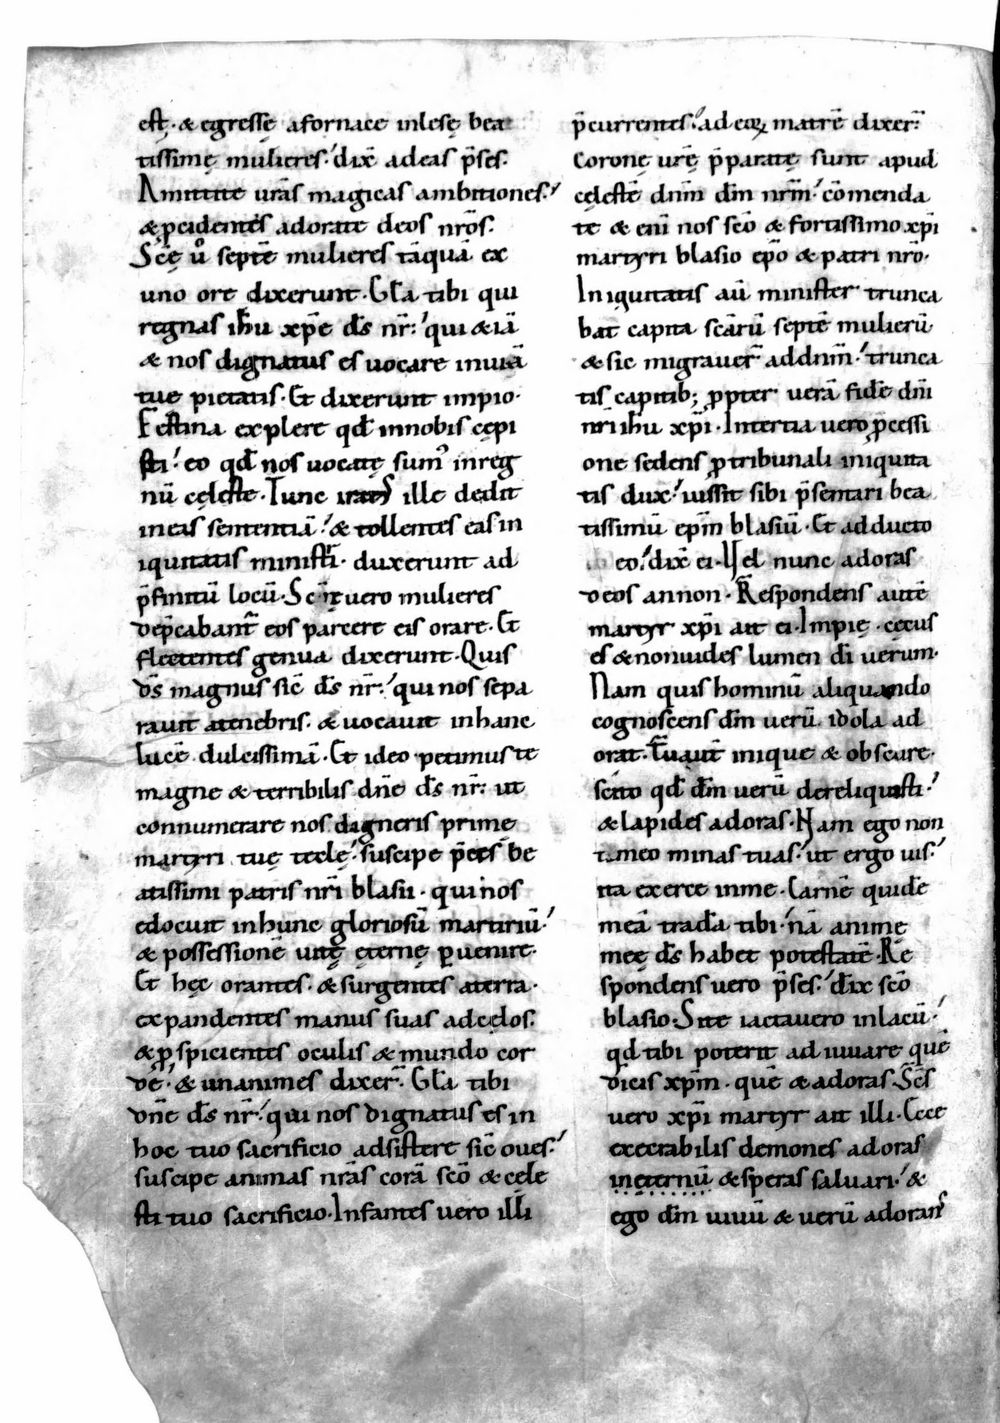 est · & egressę afornace inlesę bea
tissimę mulieres · dix̄ adeas p̄ses ·
Amittite ur̄as magicas ambitiones ·
& pcidentes adorate deos nr̄os ·
Sc̄ę ů septē mulieres tāquā ex
uno ore dixerunt · Gl̄a tibi qui
regnas ih̄u xp̄e d̄s nr̄ · qui & iā
& nos dignatus es uocare inuiā
tuę pietatis · Et dixerunt impio ·
Festina explere qd̄ innobis cępi
sti · eo qd̄ nos uocatę sumꝰ inreg
nū cęleste · Tunc iratus ille dedit
ineas sententiā · & tollentes eas in
iquitatis ministri · duxerunt ad
p̄finitū locū · Sc̄ę uero mulieres
dep̄cabant̄ eos parcere eis orare · Et
flectentes genua dixerunt · Quis
d̄s magnus sic̄ d̄s nr̄ · qui nos sepa
rauit atenebris · & uocauit inhanc
lucē dulcissimā · Et ideo petimus te
magne & terribilis dn̄e d̄s nr̄ · ut
connumerare nos digneris prime
martyri tuę teclę · suscipe p̄ces be
atissimi patris nr̄i blasii · qui nos
edocuit inhunc gloriosū martiriū ·
& possessionē uitę ęternę ꝑuenire ·
Et hęc orantes · & surgentes aterra ·
expandentes manus suas adcęlos ·
& ꝓspicientes oculis & mundo cor
de · & unanimes dixer̄ · Gl̄a tibi
dn̄e d̄s nr̄ · qui nos dignatus es in
hoc tuo sacrificio adsistere sic̄ oues ·
suscipe animas nr̄as corā sc̄o & cęle
sti tuo sacrificio · Infantes uero illi
p̄currentes · ad eoꝝ matrē dixer̄ ·
Coronę ur̄ę p̄paratę sunt apud
cęlestē dn̄m dm̄ nr̄m · cōmenda
te & eni nos sc̄o & fortissimo xp̄i
martyri blasio ep̄o & patri nr̄o ·
Iniquitatis aū minister trunca
bat capita scārū septē mulierū
& sic migrauer̄ addn̄m · trunca
tis capitib; ꝓpter uerā fidē dn̄i
nr̄i ih̄u xp̄i · Intertia uero ꝓcessi
one sedens ꝓtribunali iniquita
tis dux · iussit sibi p̄sentari bea
tissimū ep̄m blasiū · Et adducto
eo · dix̄ ei · Vel nunc adoras
deos annon · Respondens autē
martyr xp̄i ait ei · Impię · cęcus
es & nonuides lumen dī uerum ·
Nam quis hominū aliquando
cognoscens dm̄ uerū idola ad
orat · Tu aūt inique & obscure ·
scito qd̄ dm̄ uerū dereliquisti ·
& lapides adoras · Nam ego non
timeo minas tuas · ut ergo uis ·
ita exerce inme · Carnē quidē
meā trada tibi · nā animę
meę d̄s habet potestatē · Re
spondens uero p̄ses · dix̄ sc̄o
blasio · Si te iactauero inlacū ·
qd̄ tibi poterit adiuuare quē
dicis xp̄m · quē & adoras · Sc̄s
uero xp̄i martyr ait illi · Ecce
execrabilis demones adoras
inęternū & speras saluari · &
ego dm̄ uiuū & uerū adorans